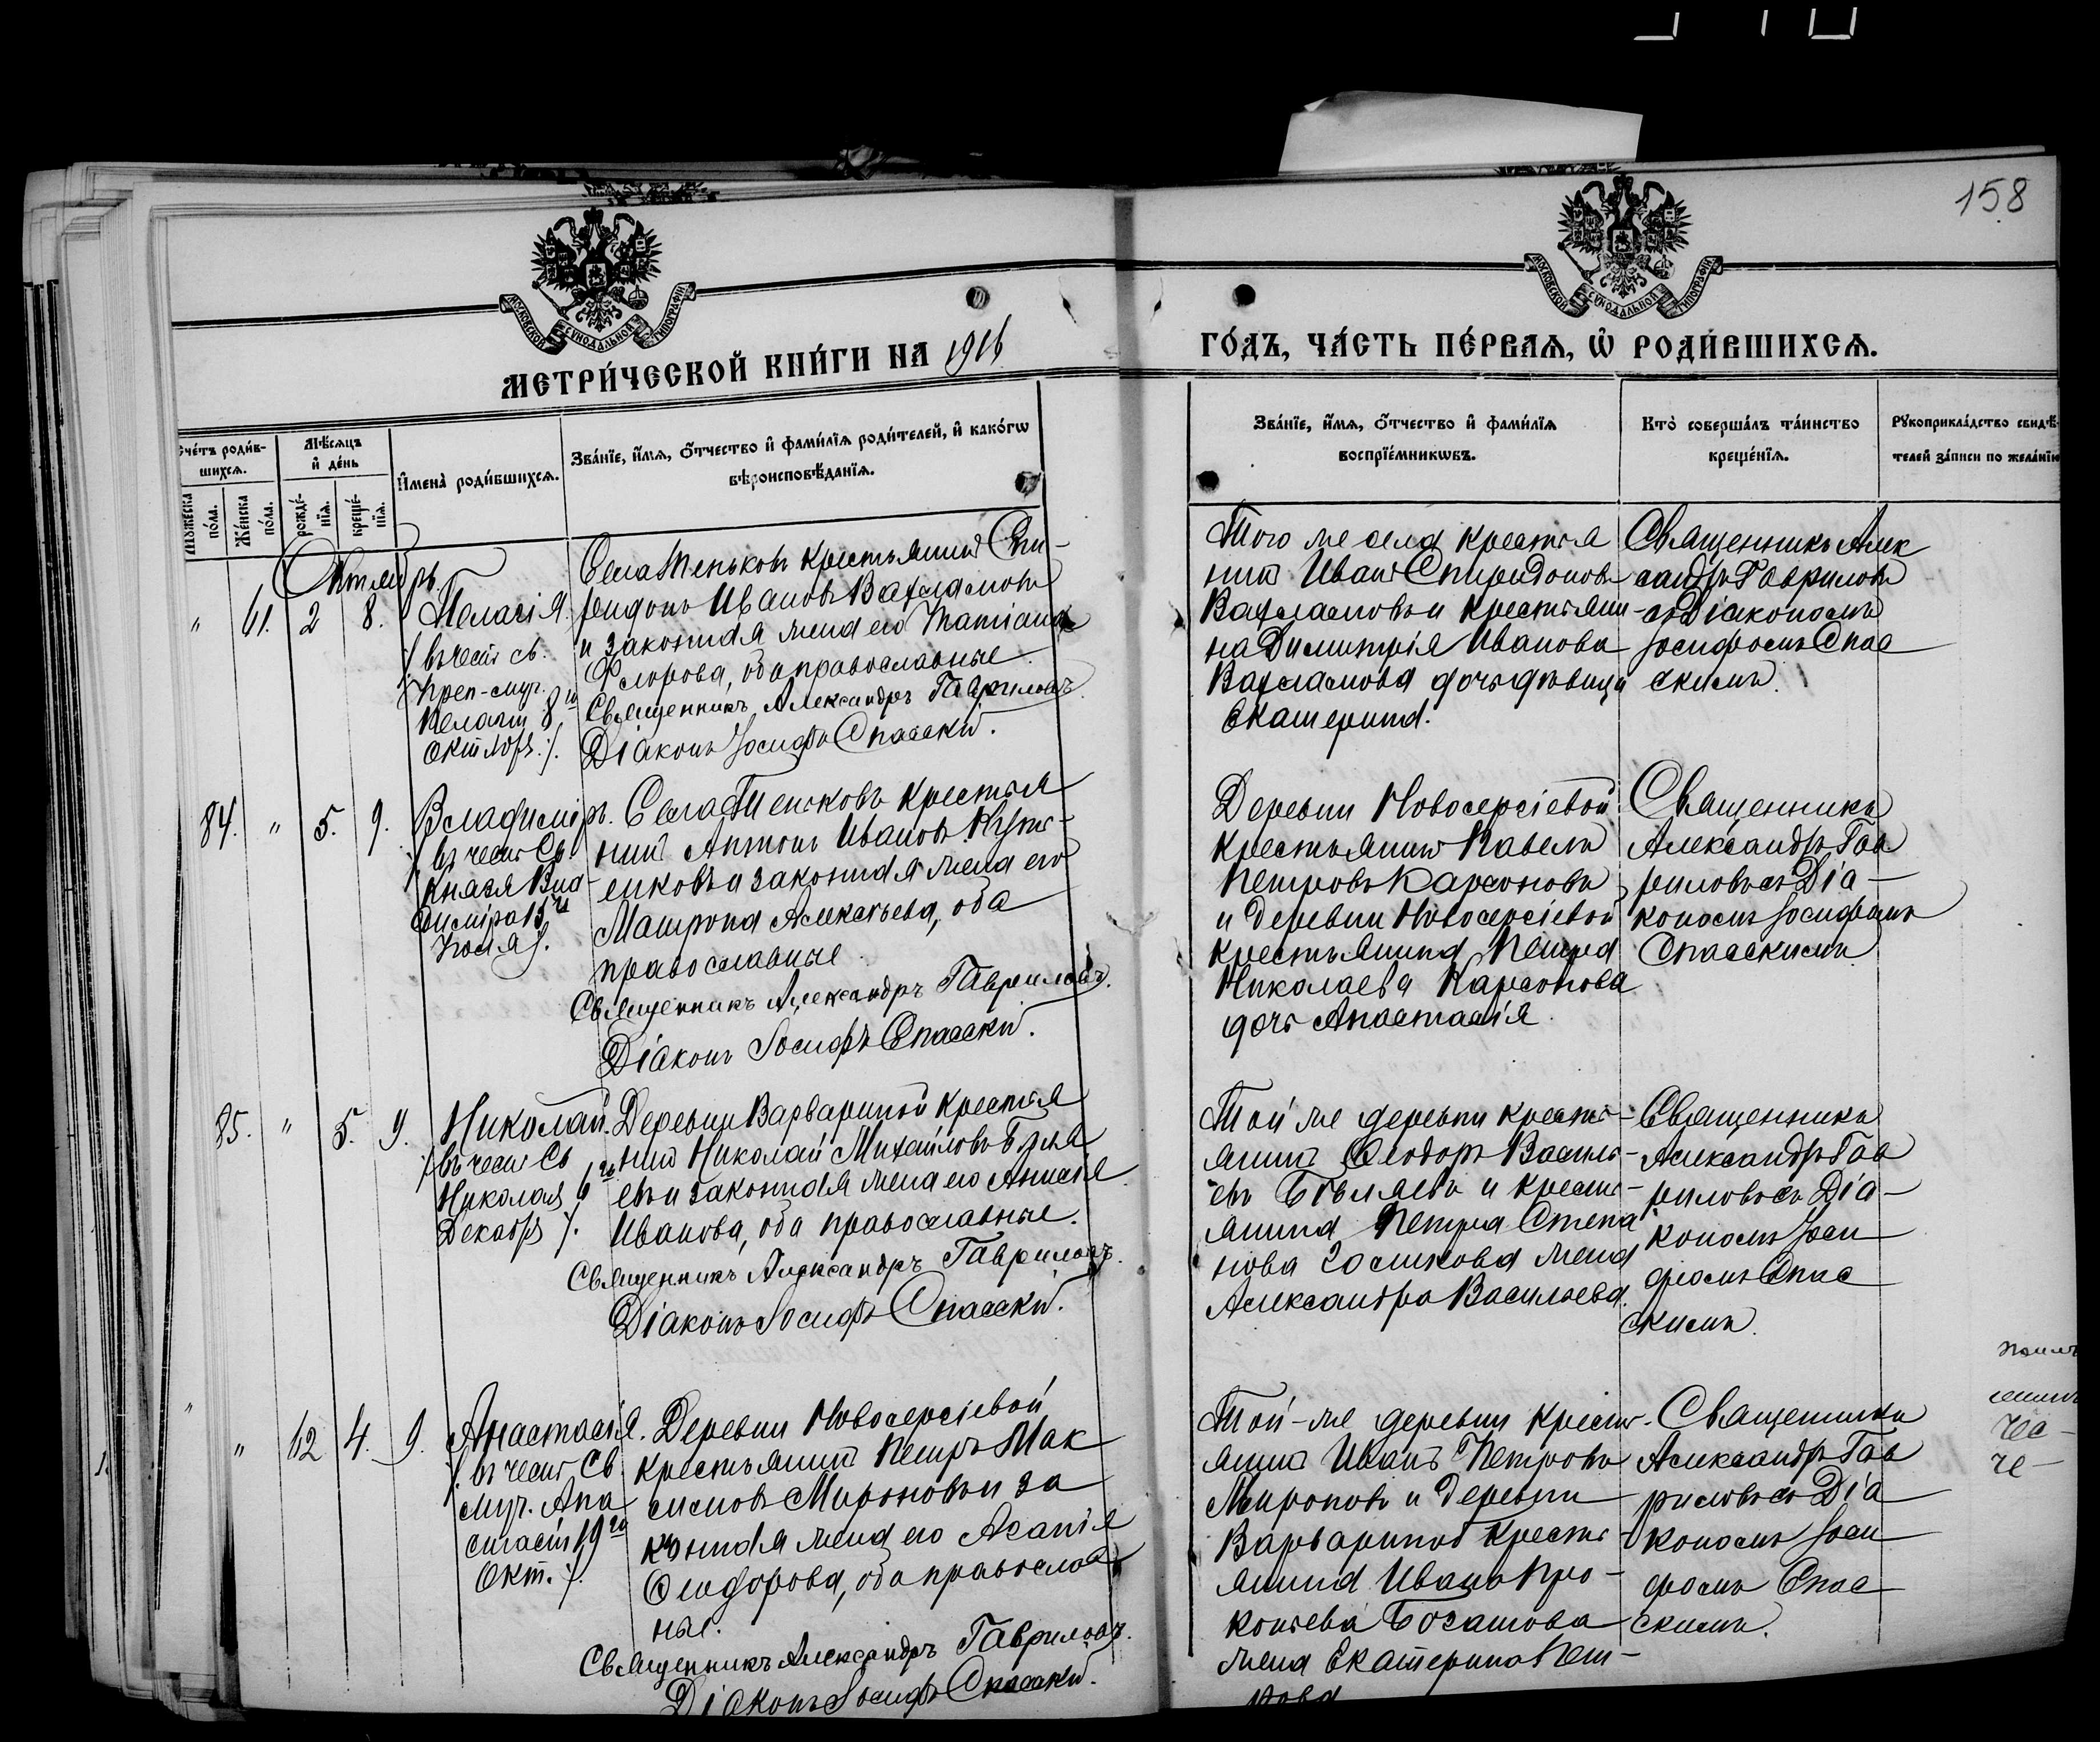 158
МОСКОВСКОЙ СУНОДАЛЬНОЙ ТИПОГРАФІИ
МОСКОВСКОЙ СУНОДАЛЬНОЙ ТИПОГРАФІИ
МЕТРИ́ЧЕСКОЙ КНИ́ГИ НА 1916
ГО́ДЪ, ЧА́СТЬ ПЕ́РВАѦ, Ѡ҆ РОДИ́ВШИХСѦ.
Сче́тъ роди́в-
шихсѧ.
Мѣ́сѧцъ
и҆ де́нь
И҆мена̀ роди́вшихсѧ.
Зва́нїе, и҆́мѧ, ѻ҆́тчество и҆ фами́лїѧ роди́телей, и҆ како́гѡ
вѣроисповѣ́данїѧ.
Мꙋ́жеска по́ла.
Же́нска по́ла.
рожде́-нїѧ.
креще́-нїѧ.
Зва́нїе, и҆́мѧ, ѻ҆́тчество и҆ фами́лїѧ
воспрїе́мникѡвъ.
Кто̀ соверша́лъ та́инство
креще́нїѧ.
Рꙋкоприкла́дство свидѣ́-
телей за́писи по жела́нїю
Октябрь
" 61. 2 8. Пелагія
/ въ честь св.
преп-муч.
Пелагіи 8го
октября /.
Села Пеньковъ крестьянинъ Спи-
ридонъ Ивановъ Варламовъ
и законная жена его Татіана
Флорова, оба православные
Священникъ Александръ Гавриловъ.
Діаконъ Іосифъ Спасскій.
Того же села крестья
нинъ Иванъ Спиридоновъ
Варламовъ и крестьяни-
на Димитрія Иванова
Варламова дочь девица
Екатерина.
Священникъ Алек
сандръ Гавриловъ
съ Діакономъ
Іосифомъ Спас
скимъ.
84. " 5. 9. Владиміръ.
/ въ честь Св.
Князя Вла-
диміра 15го
Іюля /.
Села Пеньковъ крестья
нинъ Антонъ Ивановъ
и законная жена его
Матрона Алексѣева, оба
православные
Священникъ Александръ Гавриловъ.
Діаконъ Іосифъ Спасскій.
Деревни Новосергіевой
крестьянинъ Павелъ
Петровъ
и деревни Новосергіевой
крестьянина Петра
Николаева
дочь Анастасія.
Священникъ
Александръ Гав
риловъ съ Діа-
кономъ Іосифомъ
Спасскимъ
85. " 5. 9. Николай.
/ въ честь Св
Николая 6го
Декабря /.
Деревни Варвариной крестья
нинъ Николай Михайловъ Бѣля
евъ и законная жена его Анисія
Иванова, оба православные.
Священникъ Александръ Гавриловъ.
Діаконъ Іосифъ Спасскій.
Той же деревни кресть-
янинъ Ѳеодоръ Василь-
евъ Бѣляевъ и кресть-
янина Петра Степа
нова жена
Александра Васильева.
Священникъ
Александръ Гав
риловъ съ Діа-
кономъ Іоси
фомъ Спас
скимъ.
" 62 4. 9. Анастасія.
/ въ честь Св.
муч. Ана
стасіи 29го
Окт. /.
Деревни Новосергіевой
крестьянинъ Петръ Мак
симовъ Мироновъ и за
конная жена его Агапія
Ѳеодорова, оба православ
ные.
Священникъ Александръ Гавриловъ.
Діаконъ Іосифъ Спасскій.
Той-же деревни кресть-
янинъ Иванъ Петровъ
Мироновъ и деревни
Варвариной кресть-
янина Ивана Про-
копьева Богатова
жена Екатерина Пет-
рова
Священникъ
Александръ Гав
риловъ съ Діа
кономъ Іоси
фомъ Спас
скимъ.